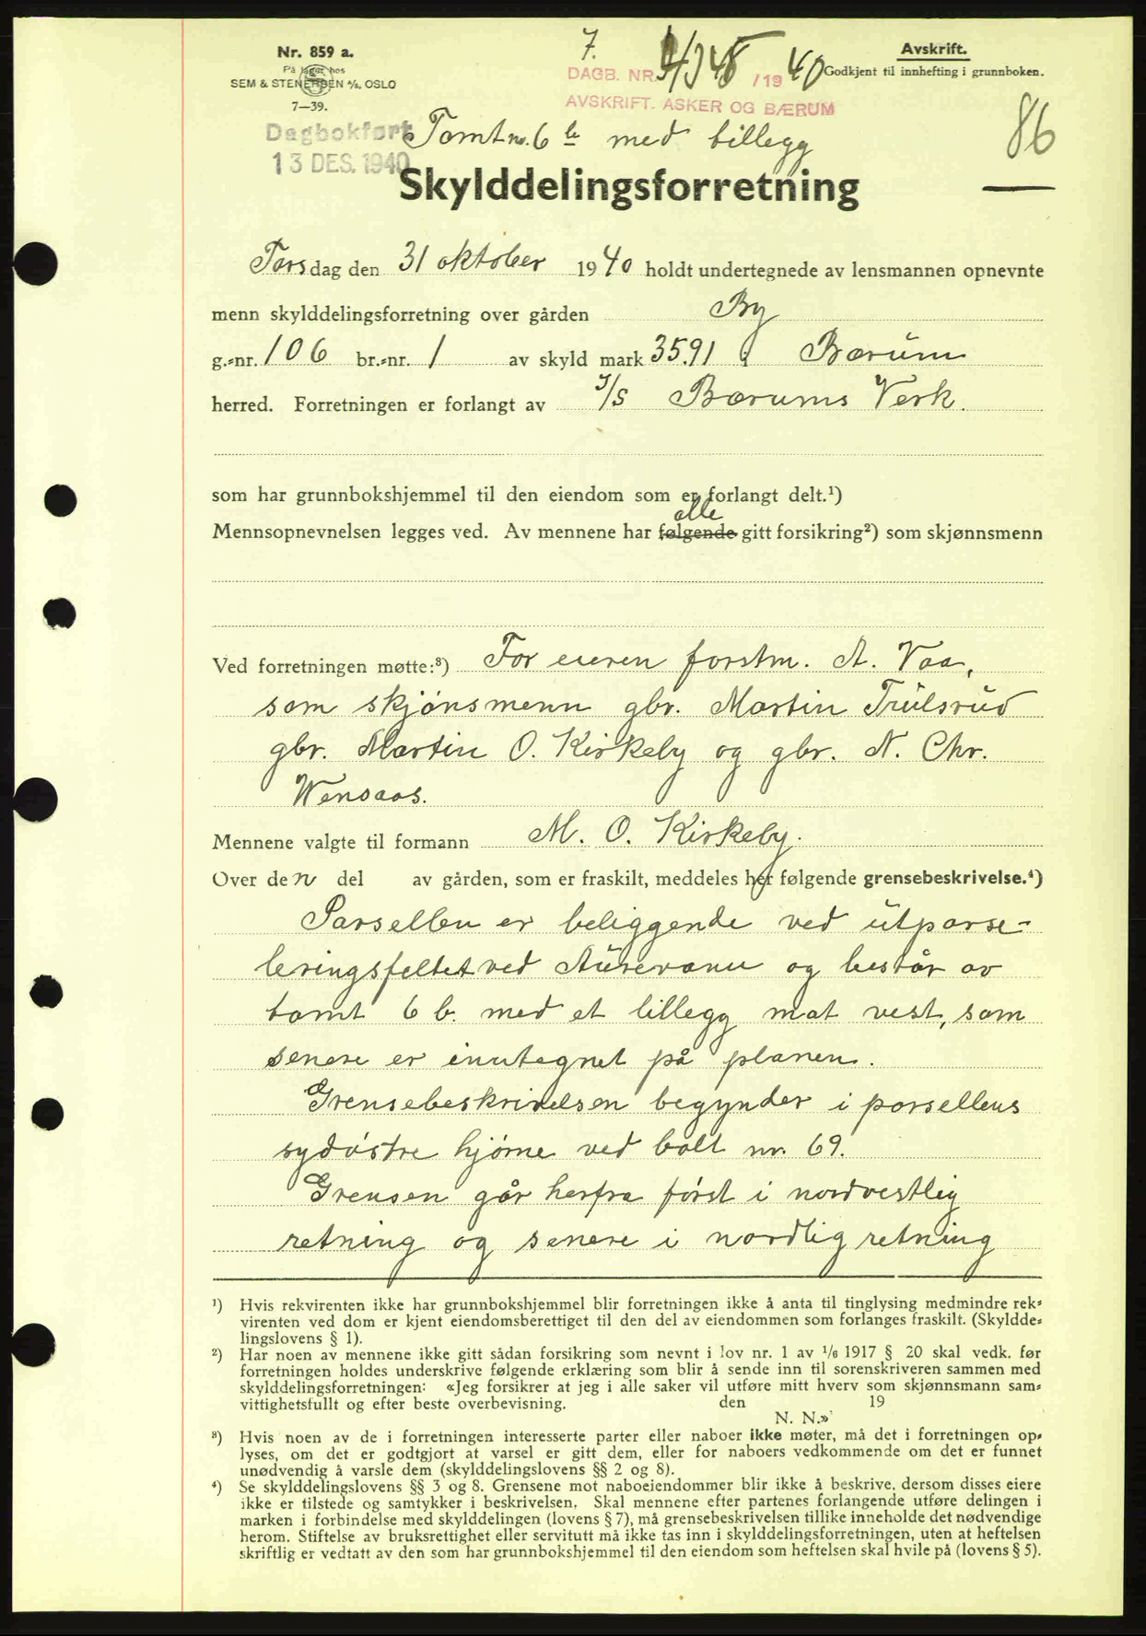 Nr. 859 a.
På lager hos
SEM & STENERSEN A/S, OSLO
7—39.
Dagbokført
13 DES. 1940
7.
DAGB. NR. /1940
AVSKRIFT. ASKER OG BÆRUM
Avskrift.
Godkjent til innhefting i grunnboken.
86
Tomt no. 6 b med tillegg
Skylddelingsforretning
Torsdag den 31 oktober 1940 holdt undertegnede av lensmannen opnevnte
menn skylddelingsforretning over gården By
g.=nr. 106 br.=nr. 1 av skyld mark 35.91 i Bærum
herred. Forretningen er forlangt av I/S Bærums Verk.
som har grunnbokshjemmel til den eiendom som er forlangt delt.¹)
alle
Mennsopnevnelsen legges ved. Av mennene har følgende gitt forsikring²) som skjønnsmenn
Ved forretningen møtte:³) For eieren forstm. A. Vaa,
som skjønsmenn gbr. Martin Trulsrud
gbr. Martin O. Kirkeby og gbr. N. Chr.
Wensaas.
Mennene valgte til formann M. O. Kirkeby.
Over den del av gården, som er fraskilt, meddeles her følgende grensebeskrivelse.⁴)
Parsellen er beliggende ved utparse-
leringsfeltet ved Aurevann og består av
tomt 6 b. med et tillegg mot vest, som
senere er inntegnet på planen.
Grensebeskrivelsen begynder i parsellens
sydøstre hjørne ved bolt nr. 69.
Grensen går herfra først i nordvestlig
retning og senere i nordlig retning
¹) Hvis rekvirenten ikke har grunnbokshjemmel blir forretningen ikke å anta til tinglysing medmindre rek=
virenten ved dom er kjent eiendomsberettiget til den del av eiendommen som forlanges fraskilt. (Skyldde=
lingslovens § 1).
²) Har noen av mennene ikke gitt sådan forsikring som nevnt i lov nr. 1 av 1/6 1917 § 20 skal vedk. før
forretningen holdes underskrive følgende erklæring som blir å sende inn til sorenskriveren sammen med
skylddelingsforretningen: «Jeg forsikrer at jeg i alle saker vil utføre mitt hverv som skjønnsmann sam=
vittighetsfullt og efter beste overbevisning. den 19
N. N.»
³) Hvis noen av de i forretningen interesserte parter eller naboer ikke møter, må det i forretningen op=
lyses, om det er godtgjort at varsel er gitt dem, eller for naboers vedkommende om det er funnet
unødvendig å varsle dem (skylddelingslovens §§ 2 og 8).
⁴) Se skylddelingslovens §§ 3 og 8. Grensene mot naboeiendommer blir ikke å beskrive, dersom disses eiere
ikke er tilstede og samtykker i beskrivelsen. Skal mennene efter partenes forlangende utføre delingen i
marken i forbindelse med skylddelingen (lovens § 7), må grensebeskrivelsen tillike inneholde det nødvendige
herom. Stiftelse av bruksrettighet eller servitutt må ikke tas inn i skylddelingsforretningen, uten at heftelsen
skriftlig er vedtatt av den som har grunnbokshjemmel til den eiendom som heftelsen skal hvile på (lovens § 5).